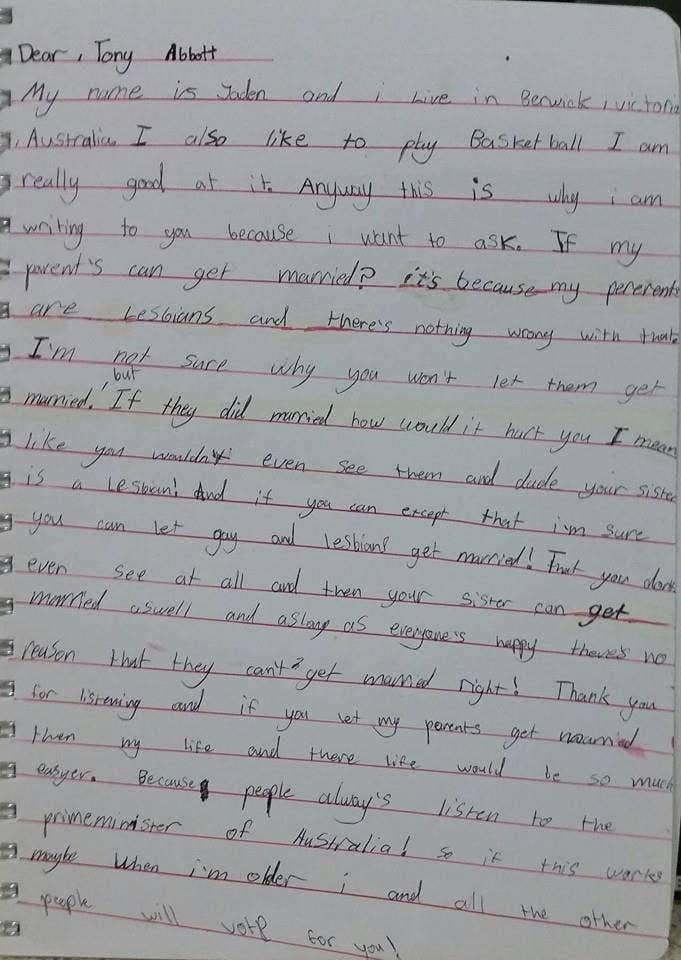 Dear, Tony Abbott
My name is Jaden and i Live in Berwick, victoria
, Australia. I also like to play Basketball I am
really good at it. Anyway this is why i am
writing to you because i want to ask. If my
parent's can get married? it's because my pererents
are Lesbians and there's nothing wrong with that.
I'm not sure why you won't let them get
married, but If they did married how would it hurt you I mean
like you wouldn't even see them and dude your sister
is a Lesbian! And if you can except that i'm sure
you can let gay and lesbians get married! That you dont
even see at all and then your sister can get
married aswell and aslong as everyone's happy there's no
reason that they can't get married right! Thank you
for listening and if you let my parents get married
then my life and there life would be so much
easyer. Because people alway's listen to the
primeminister of Australia! so if this works
maybe when i'm older i and all the other
people will vote for you!